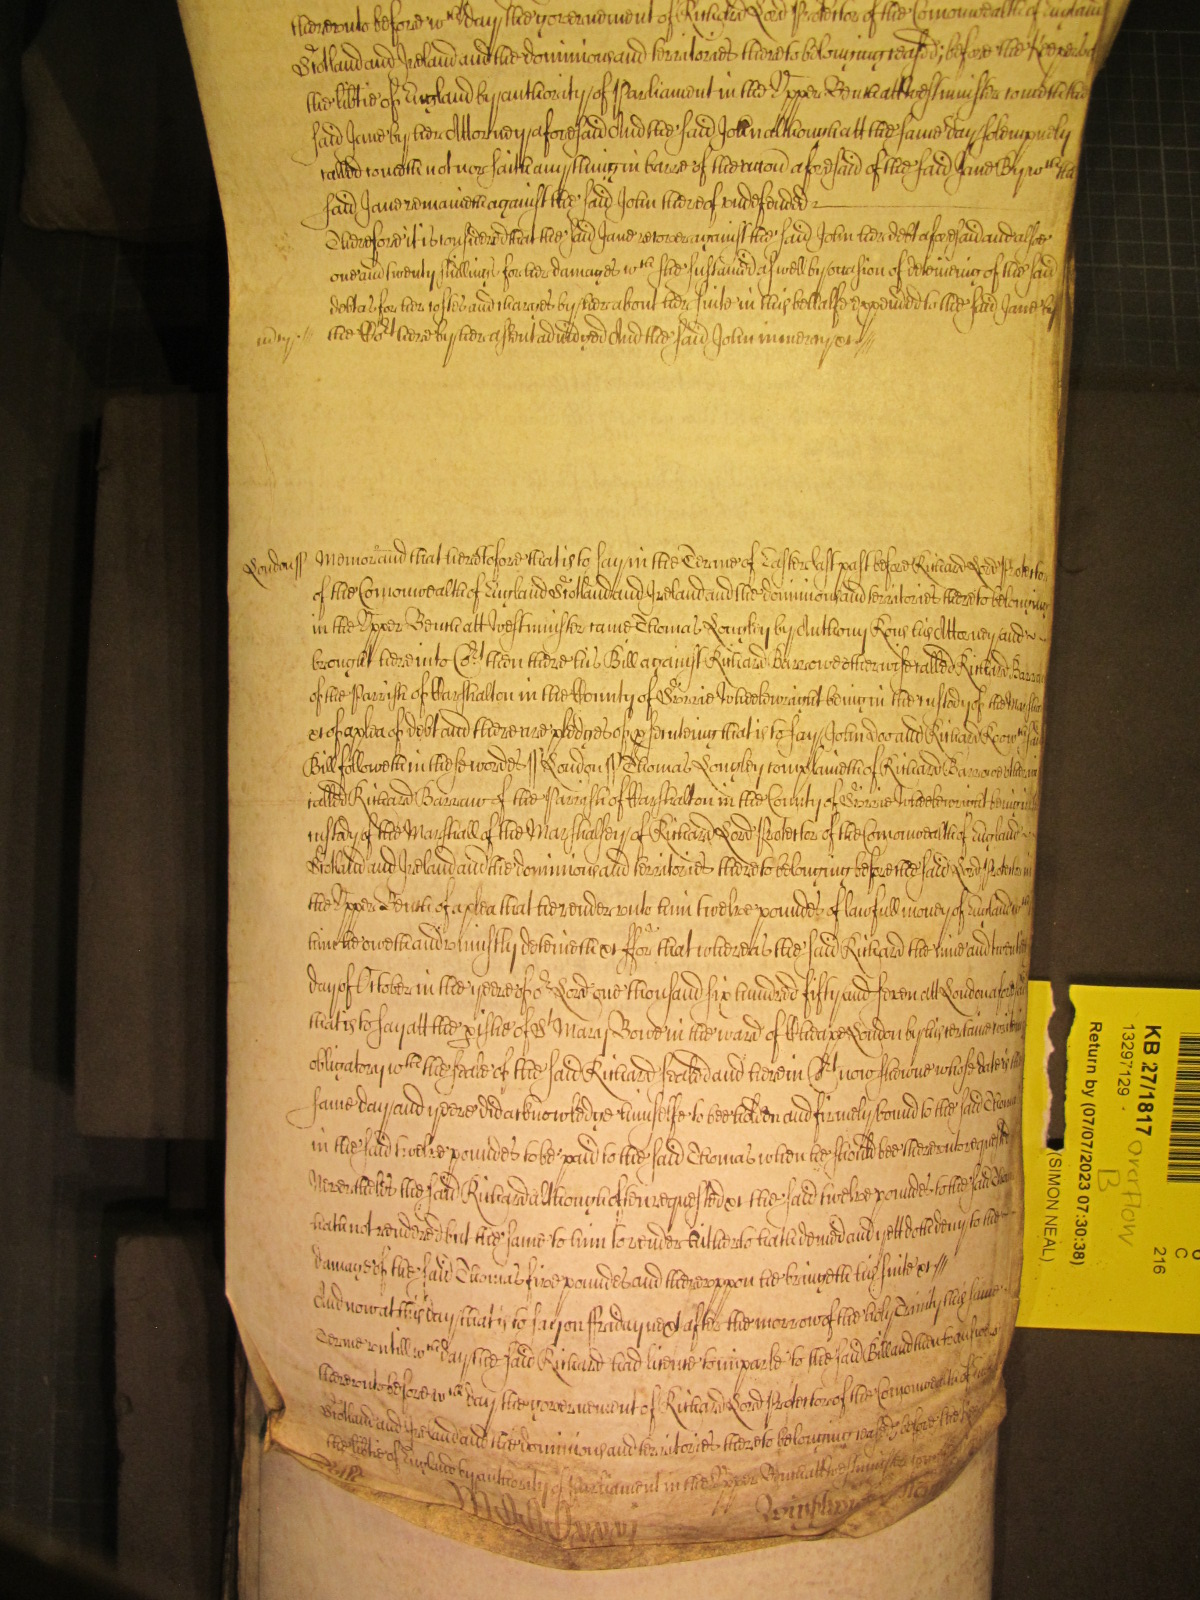 thereunto before wch day the governement of Richard Lord Protector of the Comonwealth of England
Scotland and Ireland and the dominions and territories thereto belonging ceased before the Keepers of
the libtie of England by authority of Parliament in the Upper Bench att Westminster cometh the
said Jane by her Attorney aforesaid And the said John although att the same day solempnely
called cometh not nor saith any thing in barre of the accion aforesaid of the said Jane By wch the
said Jane remaineth against the said John thereof undefended
Therefore it is considered that the said Jane recover against the said John her debt aforesaid and alsoe
one and twenty shillings for her damages wch she sustained aswell by occasion of deteineing of the said
debt as for her costes and charges by her about her suite in this behalfe expended to the said Jane by
the Cort here by her assent adiudged And the said John in mercy &c
Londonss Memorand that heretofore that is to say in the Terme of Easter last past before Richard Lord Protector
of the Comonwealth of England Scotland and Ireland and the dominions and territories thereto belonging
in the Upper Bench att Westminster came Thomas Longley by Anthony Rous his Attorney and
brought here into Cort then there his Bill against Richard Barrowe otherwise called Richard Barraw
of the Parrish of Carshalton in the County of Surrie Wheelewright being in the custody of the Marshall
&c of a plea of debt and there are pledges of psecuteing that is to say John Doo and Richard Roo wch said
Bill followeth in these wordes ss London ss Thomas Longley complaineth of Richard Barrowe otherwise
called Richard Barraw of the Parrish of Carshalton in the County of Surrie Wheelewright being in the
custody of the Marshall of the Marshalsey of Richard Lord Protector of the Comonwealth of England
Scotland and Ireland and the dominions and territories thereto belonging before the said Lord Protector in
the Upper Bench of a plea that he render unto him twelve poundes of lawfull money of England wch
him he oweth and uniustly deteineth &c ffor that whereas the said Richard the nine and twentieth
day of October in the yeere of or Lord one thousand six hundred fifty and seven att London aforesaid
that is to say att the pishe of St Mary Bowe in the ward of Cheape London by his certaine writing
obligatory wth the seale of the said Richard sealed and here in Cort now showne whose date is the
same day and yeere did acknowledge himselfe to bee holden and firmely bound to the said Thomas
in the said twelve poundes to be paid to the said Thomas when he should bee thereunto requested
Neverthelesse the said Richard although often requested &c the said twelve poundes to the said Thomas
hath not rendred but the same to him to render hitherto hath denied and yett doth deny to the
damage of the said Thomas five poundes and thereuppon he bringeth his suite &c
And now at this day that is to say on Friday next after the morrow of the holy Trinity this same
Terme untill wch day the said Richard had licence to imparle to the said Bill and then to answere
thereunto before wch day the governement of Richard Lord Protector of the Comonwealth of
Scotland and Ireland and the dominions and territories thereto belonging ceased before the
the libtie of England by authority of Parliament in the Upper Bench att Westminster
KB 27/1817
13297129
Return by (07/07/2023 07:30:38)
(SIMON NEAL)
Overflow
B
216
C